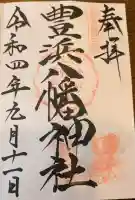 奉拝
豊浜八幡神社
令和四年元月十一日